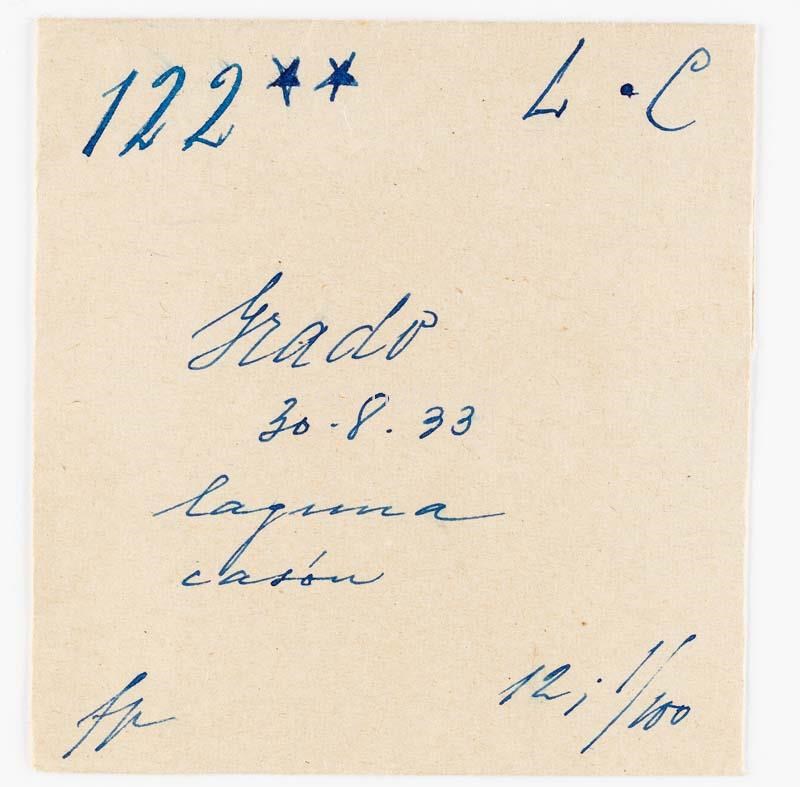 122** L · C
Grado
30 · 8 · 33
laguna
casón
fp 12; 1/100